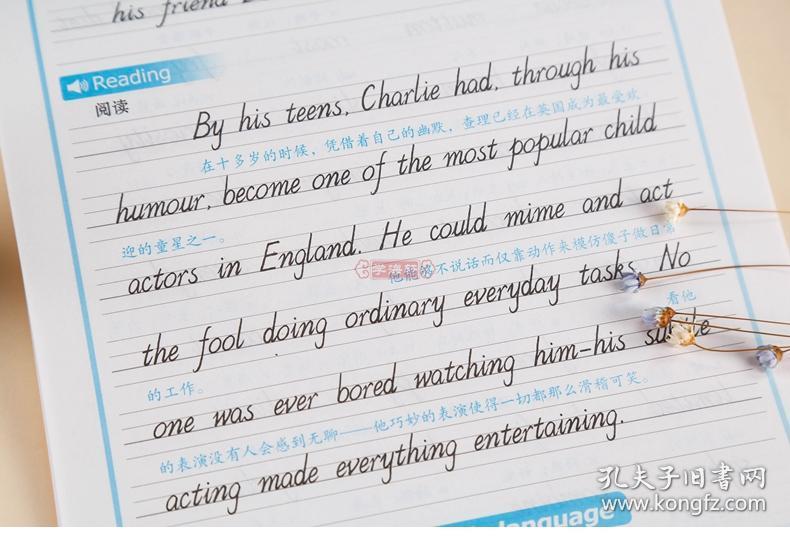 his friend
Reading
阅读
By his teens, Charlie had, through his
在十多岁的时候，凭借着自己的幽默，查理已经在英国成为最受欢
humour, become one of the most popular child
迎的童星之一。
actors in England. He could mime and act
他能够不说话而仅靠动作来模仿傻子做日常
the fool doing ordinary everyday tasks. No
的工作。 看他
one was ever bored watching him-his
的表演没有人会感到无聊——他巧妙的表演使得一切都那么滑稽可笑。
acting made everything entertaining.
language
孔夫子旧书网
www.kongfz.com